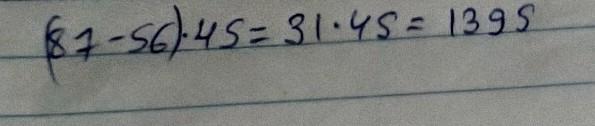 (87-56)·45=31·45=1395